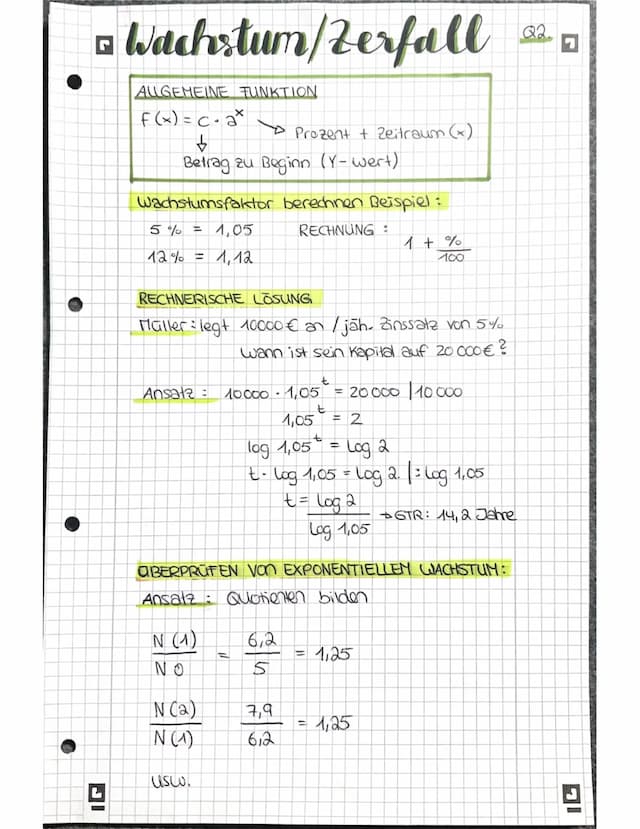 Wachstum/Zerfall
Q2.
ALLGEMEINE FUNKTION
F(x) = c · a^x → Prozent + Zeitraum (x)
↓
Betrag zu Beginn (Y-Wert)
Wachstumsfaktor berechnen Beispiel:
5% = 1,05 RECHNUNG: 1 + %/100
12% = 1,12
RECHNERISCHE LÖSUNG
Müller: legt 10000€ an / jäh. Zinssatz von 5%
Wann ist sein Kapital auf 20 000€?
Ansatz: 10000 · 1,05^t = 20 000 | 10 000
1,05^t = 2
log 1,05^t = log 2
t · log 1,05 = log 2. |: log 1,05
t = log 2 / log 1,05 → GTR: 14,2 Jahre
ÜBERPRÜFEN VON EXPONENTIELLEM WACHSTUM:
Ansatz: Quotienen bilden
N(1)/N0 = 6,2/5 = 1,25
N(2)/N(1) 7,9/6,2 = 1,25
usw.